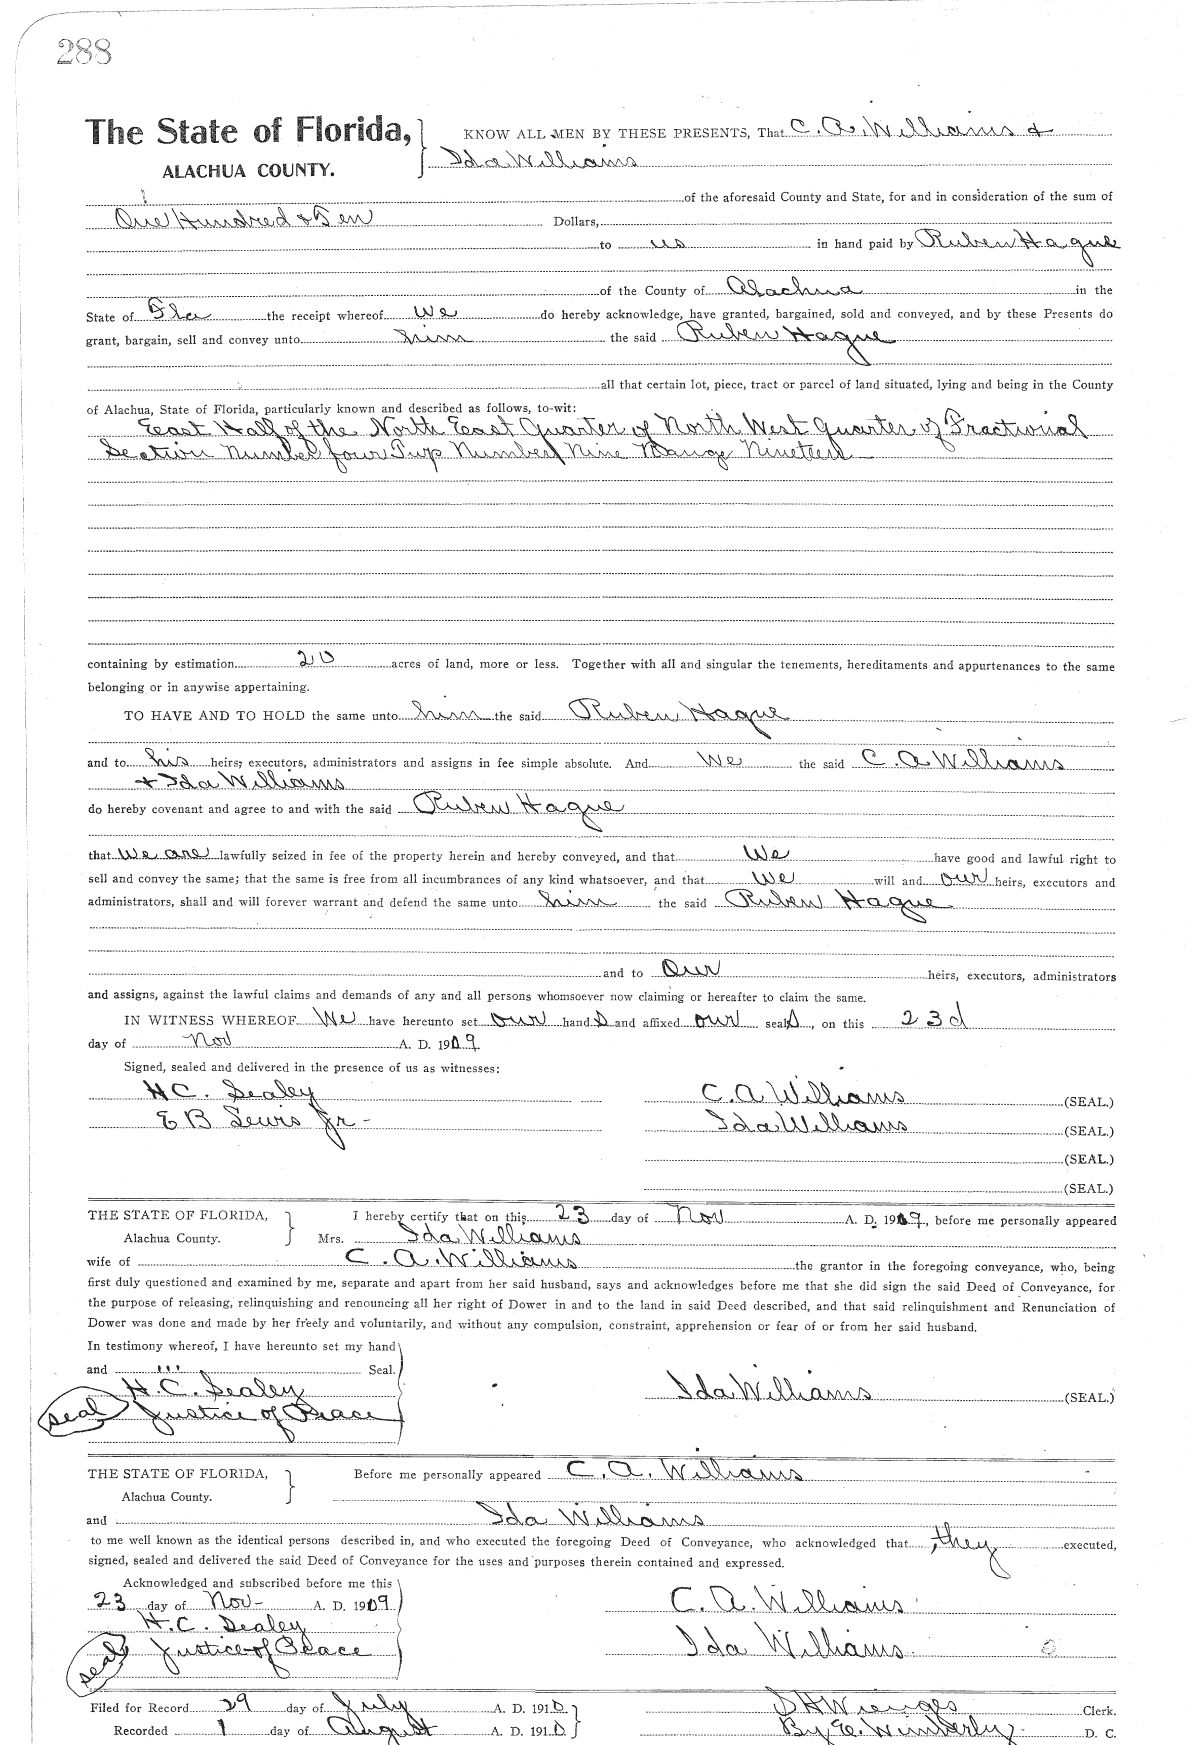 288
The State of Florida, KNOW ALL MEN BY THESE PRESENTS, That C. A. Williams &
ALACHUA COUNTY. Ida Williams
of the aforesaid County and State, for and in consideration of the sum of
One Hundred & Ten Dollars,
to us in hand paid by Ruben Hague
of the County of Alachua in the
State of Fla the receipt whereof we do hereby acknowledge, have granted, bargained, sold and conveyed, and by these Presents do
grant, bargain, sell and convey unto him the said Ruben Hague
all that certain lot, piece, tract or parcel of land situated, lying and being in the County
of Alachua, State of Florida, particularly known and described as follows, to-wit:
East Half of the North East Quarter of North West Quarter of Fractional
Section Number four Twp Number Nine Range Nineteen
containing by estimation 20 acres of land, more or less. Together with all and singular the tenements, hereditaments and appurtenances to the same
belonging or in anywise appertaining.
TO HAVE AND TO HOLD the same unto him the said Ruben Hague
and to his heirs, executors, administrators and assigns in fee simple absolute. And We the said C. A Williams
& Ida Williams
do hereby covenant and agree to and with the said Ruben Hague
that we are lawfully seized in fee of the property herein and hereby conveyed, and that We have good and lawful right to
sell and convey the same; that the same is free from all incumbrances of any kind whatsoever, and that We will and our heirs, executors and
administrators, shall and will forever warrant and defend the same unto him the said Ruben Hague
and to Our heirs, executors, administrators
and assigns, against the lawful claims and demands of any and all persons whomsoever now claiming or hereafter to claim the same.
IN WITNESS WHEREOF We have hereunto set our hands and affixed our seals, on this 23d
day of Nov A. D. 1909
Signed, sealed and delivered in the presence of us as witnesses:
H C. Sealey C. A Williams (SEAL.)
E B Lewis Jr - Ida Williams (SEAL.)
(SEAL.)
(SEAL.)
THE STATE OF FLORIDA, I hereby certify that on this 23 day of Nov A. D. 1909, before me personally appeared
Alachua County. Mrs. Ida Williams
wife of C. A. Williams the grantor in the foregoing conveyance, who, being
first duly questioned and examined by me, separate and apart from her said husband, says and acknowledges before me that she did sign the said Deed of Conveyance, for
the purpose of releasing, relinquishing and renouncing all her right of Dower in and to the land in said Deed described, and that said relinquishment and Renunciation of
Dower was done and made by her freely and voluntarily, and without any compulsion, constraint, apprehension or fear of or from her said husband.
In testimony whereof, I have hereunto set my hand
and Seal.
H. C. Sealey Ida Williams (SEAL.)
seal Justice of Peace
THE STATE OF FLORIDA, Before me personally appeared C. A. Williams
Alachua County.
and Ida Williams
to me well known as the identical persons described in, and who executed the foregoing Deed of Conveyance, who acknowledged that they executed,
signed, sealed and delivered the said Deed of Conveyance for the uses and purposes therein contained and expressed.
Acknowledged and subscribed before me this
23 day of Nov- A. D. 1909 C. A. Williams
H. C. Sealey
seal Justice of Peace Ida Williams
Filed for Record 29 day of July A. D. 1910 S H Wienges Clerk.
Recorded 1 day of August A. D. 1910 By E. Wimberly D. C.